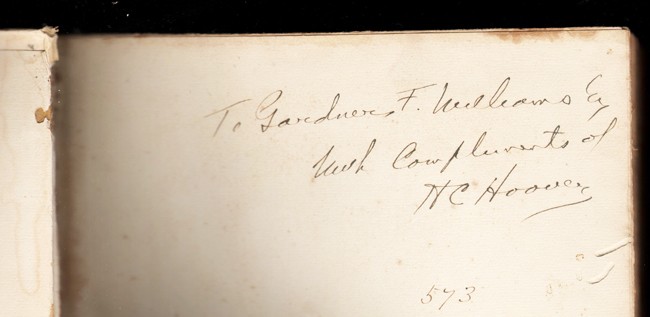 To Gardner F. Williams Esq
With Compliments of
H C Hoover
573